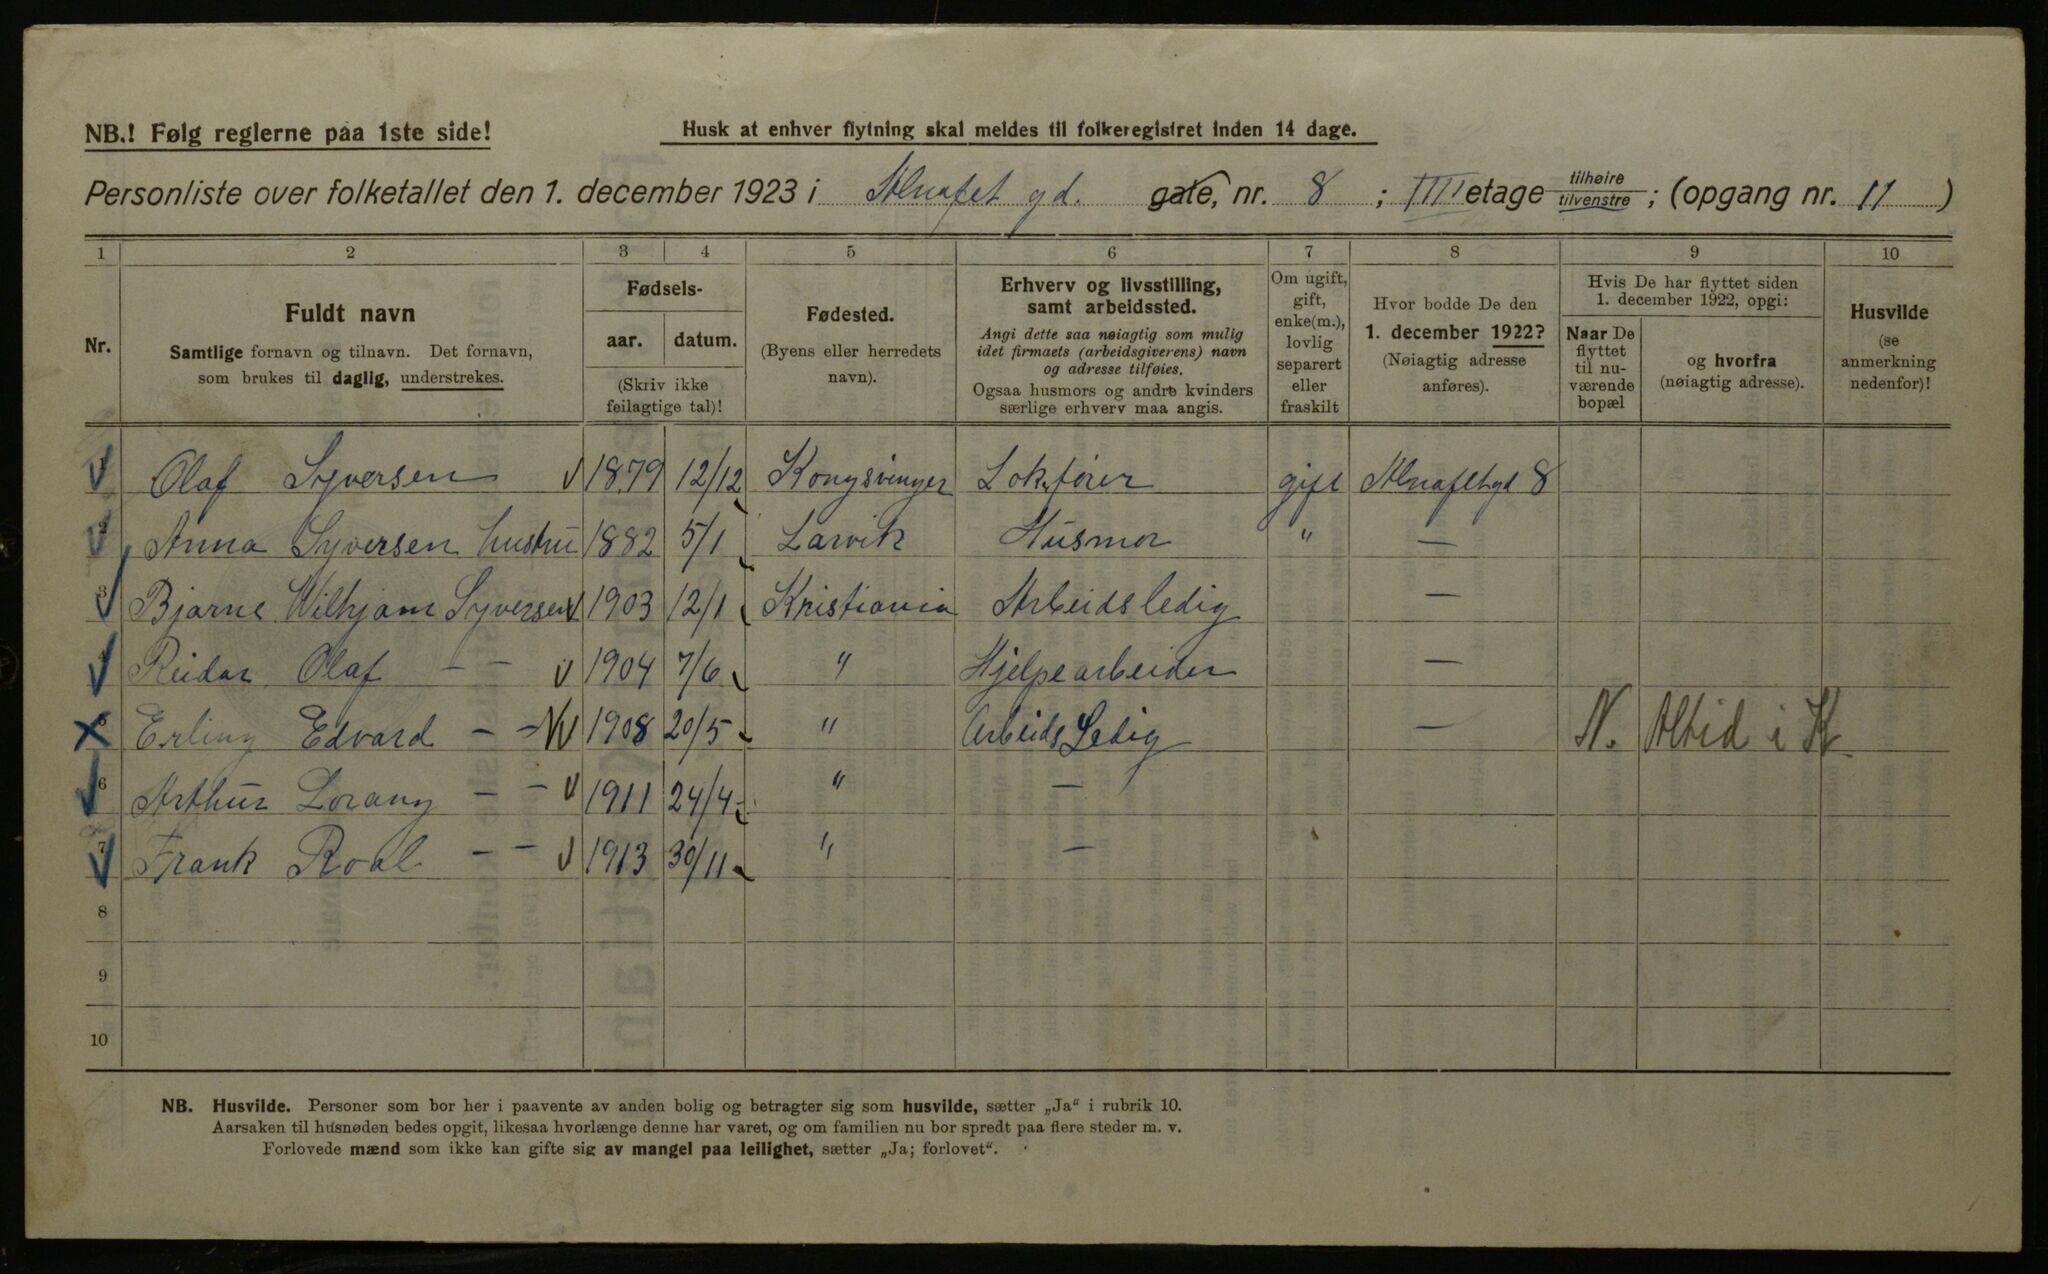 NB.! Følg reglerne paa 1ste side!
Husk at enhver flytning skal meldes til folkeregistret inden 14 dage.
Personliste over folketallet den 1. december 1923 i Alnafet gd. gate, nr. 8 ; III etage tilhøire tilvenstre ; (opgang nr. 11 )
1 2 3 4 5 6 7 8 9 10
Nr.
Fuldt navn
Samtlige fornavn og tilnavn. Det fornavn,
som brukes til daglig, understrekes.
Fødsels-
aar. datum.
(Skriv ikke
feilagtige tal)!
Fødested.
(Byens eller herredets
navn).
Erhverv og livsstilling,
samt arbeidssted.
Angi dette saa nøiagtig som mulig
idet firmaets (arbeidsgiverens) navn
og adresse tilføies.
Ogsaa husmors og andre kvinders
særlige erhverv maa angis.
Om ugift,
gift,
enke(m.),
lovlig
separert
eller
fraskilt
Hvor bodde De den
1. december 1922?
(Nøiagtig adresse
anføres).
Hvis De har flyttet siden
1. december 1922, opgi:
Naar De
flyttet
til nu-
værende
bopæl
og hvorfra
(nøiagtig adresse).
Husvilde
(se
anmerkning
nedenfor)!
Olaf Syversen 1879 12/12 Kongsvinger Lok.fører gift Alnafetgd 8
2 Anna Syversen hustru 1882 5/1 Larvik Husmor " —
3 Bjarne Wilhjam Syversen 1903 12/1 Kristiania Arbeidsledig —
4 Reidar Olaf — — 1904 7/6 " Hjelpearbeider —
5 Erling Edvard — — N 1908 20/5 " Arbeids Ledig — N. Altid i K
6 Arthur Lorang — — 1911 24/4 " —
7 Frank Roal — — 1913 30/11 " —
8
9
10
NB. Husvilde. Personer som bor her i paavente av anden bolig og betragter sig som husvilde, sætter „Ja" i rubrik 10.
Aarsaken til husnøden bedes opgit, likesaa hvorlænge denne har varet, og om familien nu bor spredt paa flere steder m. v.
Forlovede mænd som ikke kan gifte sig av mangel paa leilighet, sætter „Ja; forlovet".